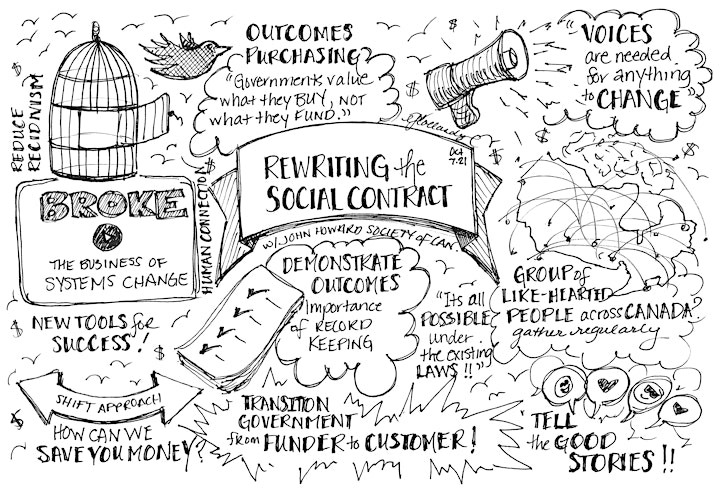 OUTCOMES
PURCHASING
"Governments value
what they BUY, NOT
what they FUND."
VOICES
are needed
for anything
to CHANGE"
REDUCE
RECIDIVISM
OCT
7.21
REWRITING the
SOCIAL CONTRACT
W/ JOHN HOWARD SOCIETY of CAN.
BROKE
THE BUSINESS OF
SYSTEMS CHANGE
HUMAN CONNECTION
DEMONSTRATE
OUTCOMES
Importance
of RECORD
KEEPING
"It's all
POSSIBLE
under
the existing
LAWS!!"
GROUP of
LIKE-HEARTED
PEOPLE across CANADA
gather regularly
NEW TOOLS for
SUCCESS!
SHIFT APPROACH
HOW CAN WE
SAVE YOU MONEY?
TRANSITION
GOVERNMENT
from FUNDER to CUSTOMER!
TELL
the GOOD
STORIES!!